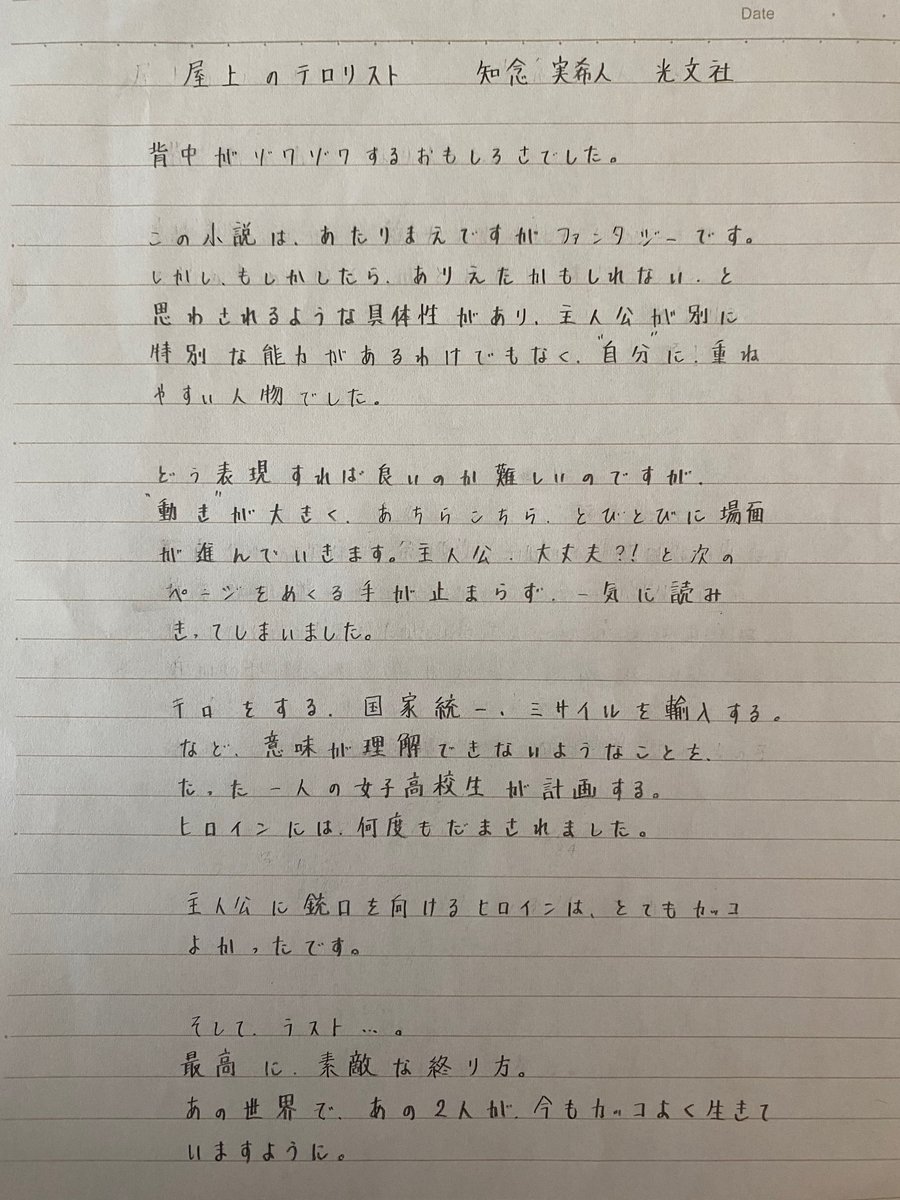 Date
屋上のテロリスト 知念実希人 光文社
背中がゾワゾワするおもしろさでした。
この小説は、あたりまえですがファンタジーです。
しかし、もしかしたら、ありえたかもしれない、と
思わされるような具体性があり、主人公が別に
特別な能力があるわけでもなく、"自分"に、重ね
やすい人物でした。
どう表現すれば良いのか難しいのですが、
"動き"が大きく、あちらこちら、とびとびに場面
が進んでいきます。主人公、大丈夫?!と次の
ページをめくる手が止まらず、一気に読み
きってしまいました。
テロをする、国家統一、ミサイルを輸入する。
など、意味が理解できないようなことを、
たった一人の女子高校生が計画する。
ヒロインには、何度もだまされました。
主人公に銃口を向けるヒロインは、とてもカッコ
よかったです。
そして、ラスト…。
最高に、素敵な終り方。
あの世界で、あの2人が、今もカッコよく生きて
いますように。